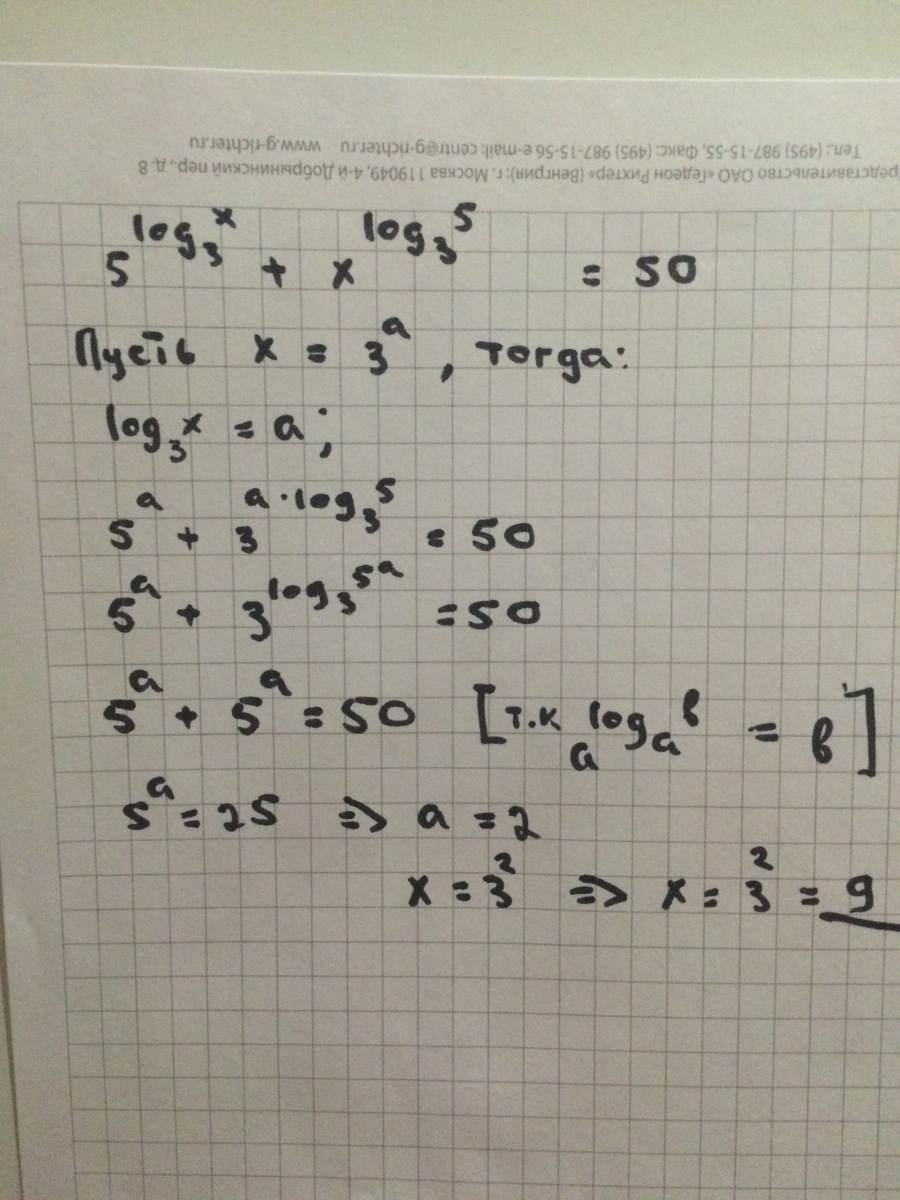 Тел.: (495) 987-15-55, Факс: (495) 987-15-56 e-mail: centr@g-richter.ru www.g-richter.ru
редставительство ОАО «Гедеон Рихтер» (Венгрия): г. Москва 119049, 4-й Добрынинский пер., д. 8
5^{log_3 x} + x^{log_3 5} = 50
Пусть x = 3^a, тогда:
log_3 x = a;
5^a + 3^{a·log_3 5} = 50
5^a + 3^{log_3 5^a} = 50
5^a + 5^a = 50 [т.к a^{log_a b} = b]
5^a = 25 => a = 2
x = 3^2 => x = 3^2 = 9